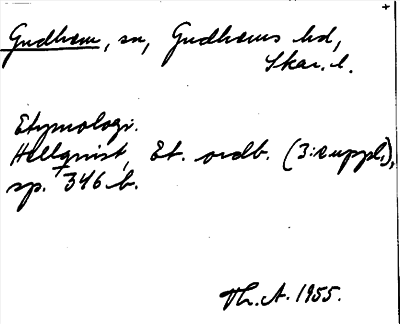 Gudhem, sn, Gudhems hd,
Skar. l.
Etymologi.
Hellquist, Et. ordb. (3:e uppl.),
sp. 346 b.
Th. A. 1955.